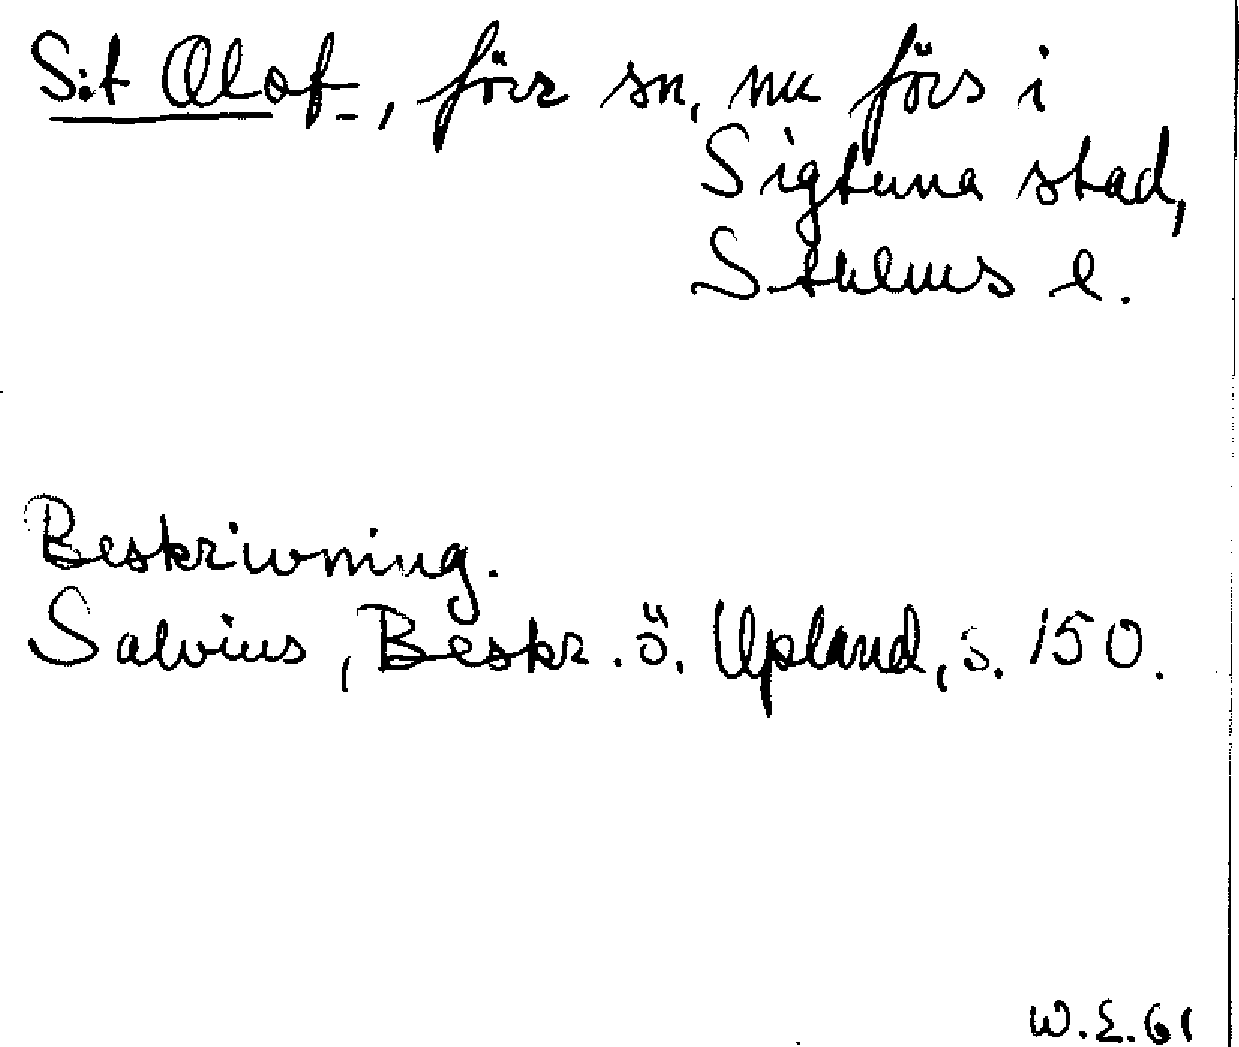 S:t Olof, förr sn, nu förs i
Sigtuna stad,
Sthlms l.
Beskrivning.
Salvius, Beskr. ö. Upland, s. 150.
W.E. 61